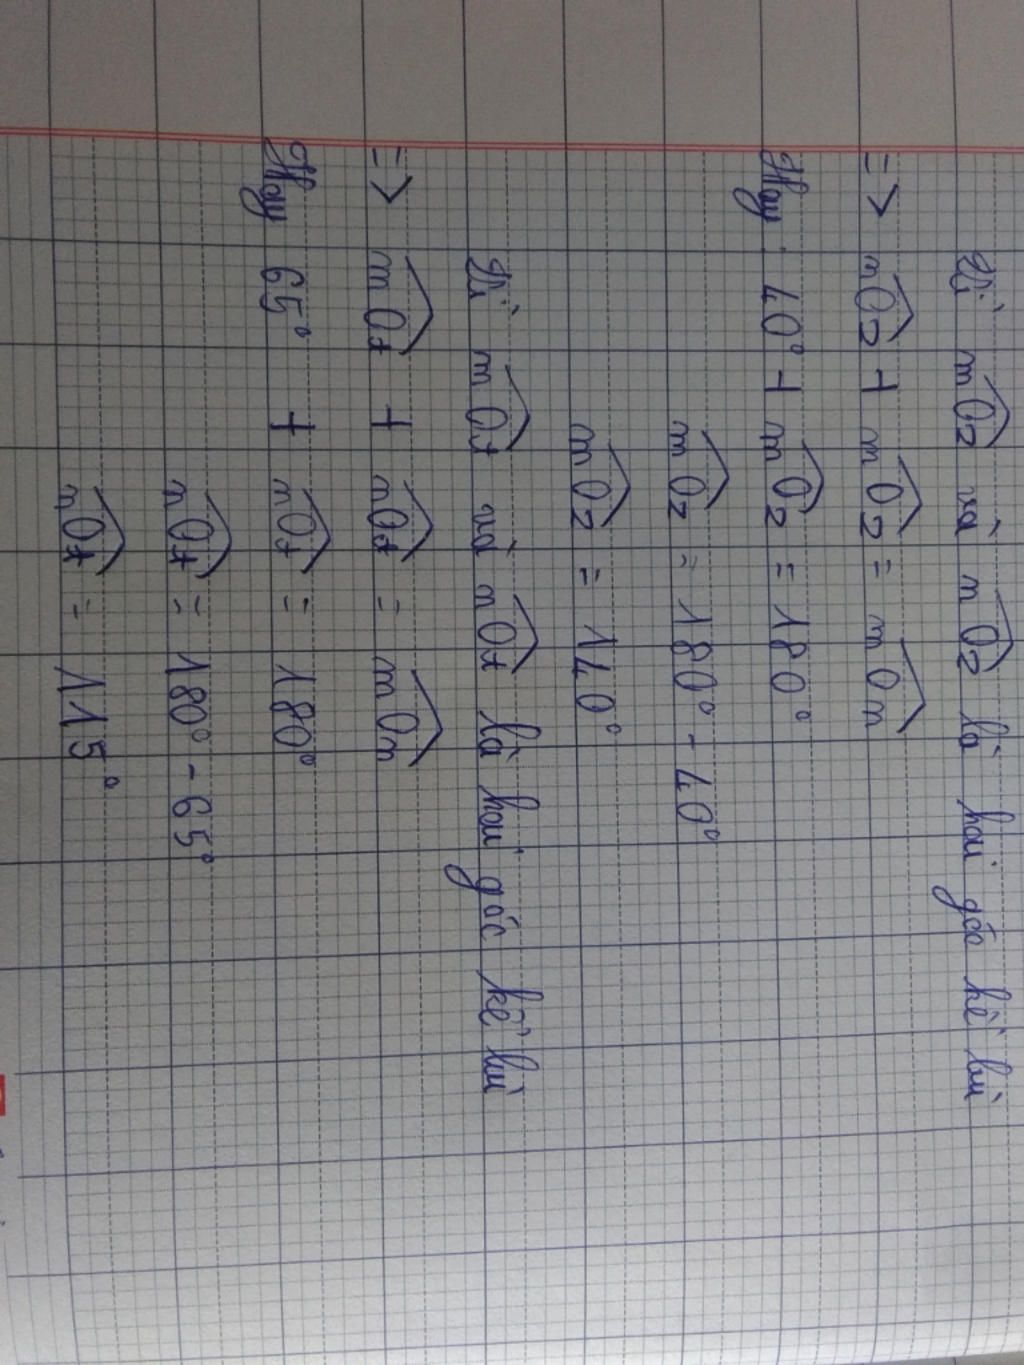 Vì mOz và nOz là hai góc kề bù
=> nOz + mOz = mOn
Hay : 40° + mOz = 180°
mOz = 180° - 40°
mOz = 140°
Vì mOt và nOt là hai góc kề bù
=> mOt + nOt = mOn
Hay 65° + nOt = 180°
nOt = 180° - 65°
nOt = 115°